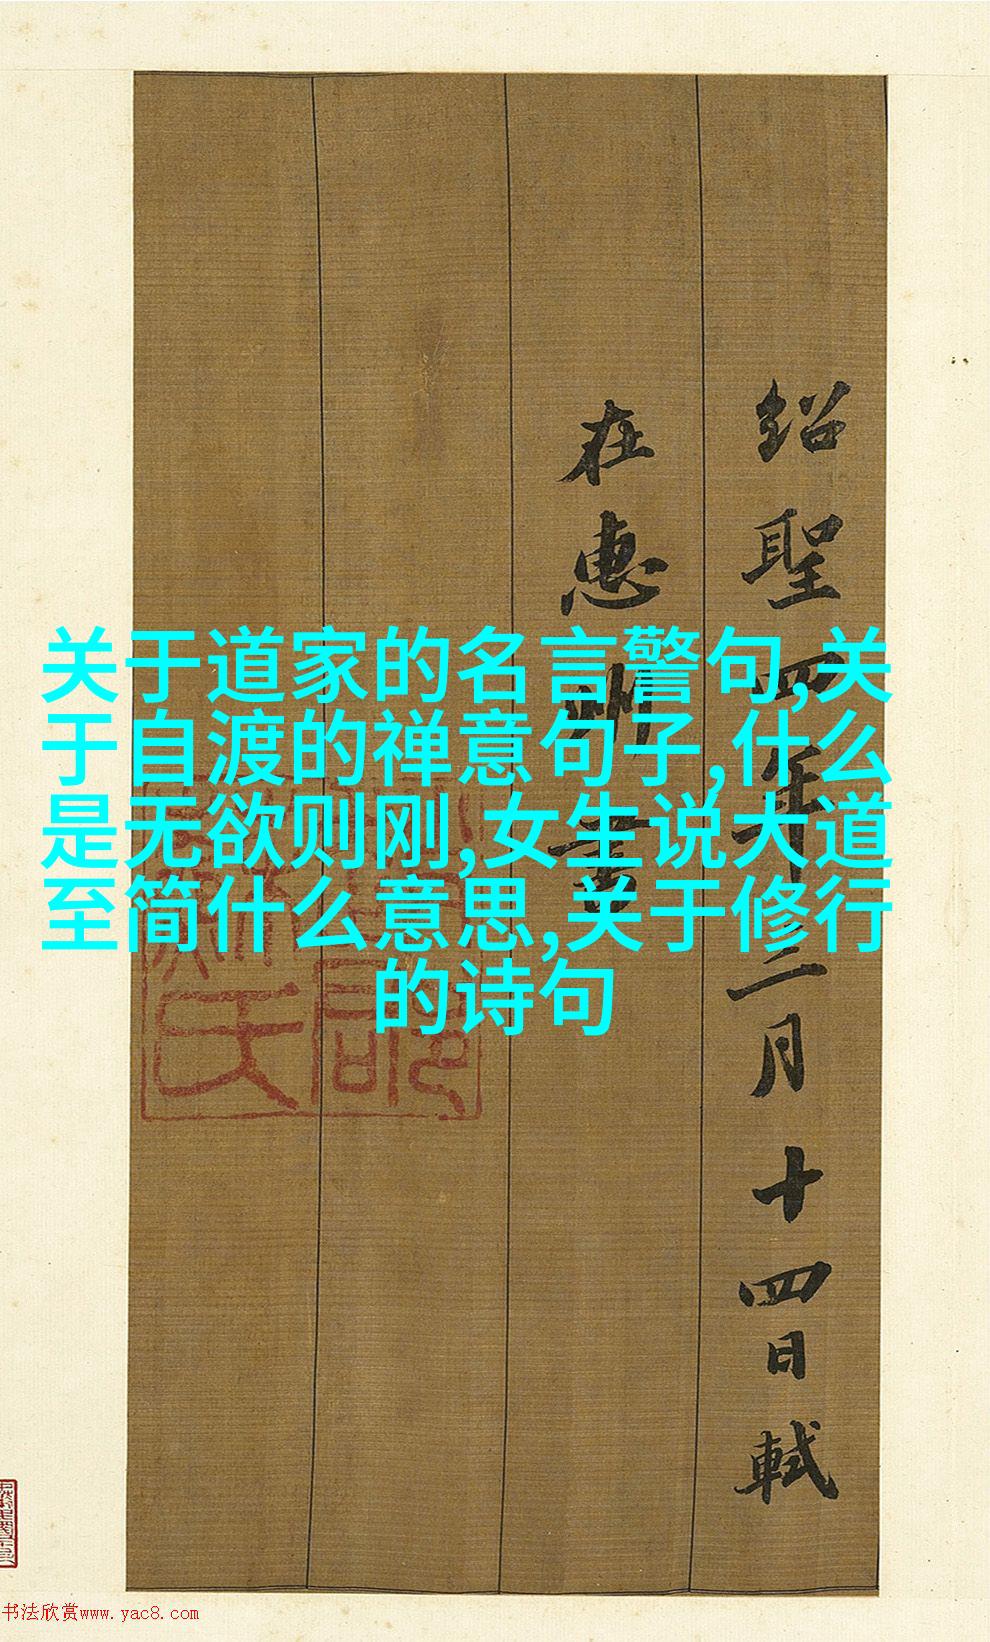 关于道家的名言警句,关
于自渡的禅意句子,什么
是无欲则刚,女生说大道
至简什么意思,关于修行
的诗句
绍聖四年二月十四日軾
在惠州書
书法欣赏www.yac8.com